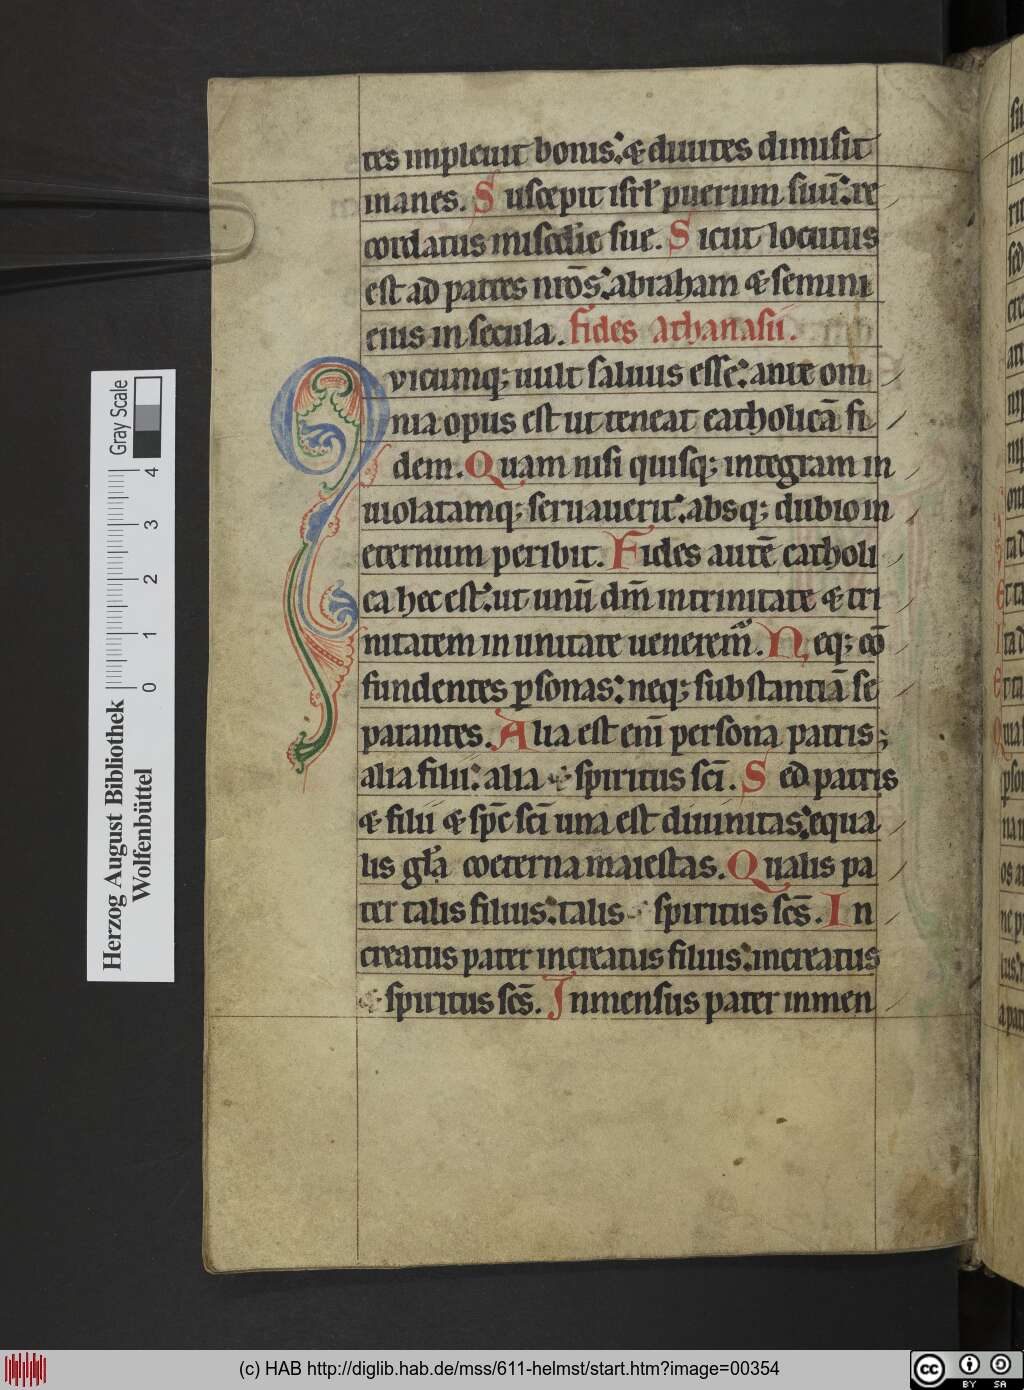 tes impleuit bonis: & diuites dimisit
inanes. Suscepit isrl puerum suū: re
cordatus miscdie sue. Sicut locutus
est ad patres nr̄os: abraham & semini
eius in secula. fides athanasii.
Quicumq; uult saluus esse: ante om
nia opus est ut teneat catholicā fi
dem. Quam nisi quisq; integram in
uiolatamq; seruauerit: absq; dubio in
eternum peribit. Fides autē catholi
ca hec est: ut unū dm̄ in trinitate & tri
nitatem in unitate ueneremᷣ. Neq; cō
fundentes ꝑsonas: neq; substantiā se
parantes. Alia est eni̅ persona patris;
alia filii: alia spiritus sc̄i. Sed patris
& filii & sp̄c sc̄i una est diuinitas: equa
lis gl̄a coeterna maiestas. Qualis pa
ter talis filius: talis spiritus sc̄s. In
creatus pater increatus filius: increatus
& spiritus sc̄s. Inmensus pater inmen
Gray Scale
4
3
2
1
0
Herzog August Bibliothek
Wolfenbüttel
(c) HAB http://diglib.hab.de/mss/611-helmst/start.htm?image=00354
cc BY SA